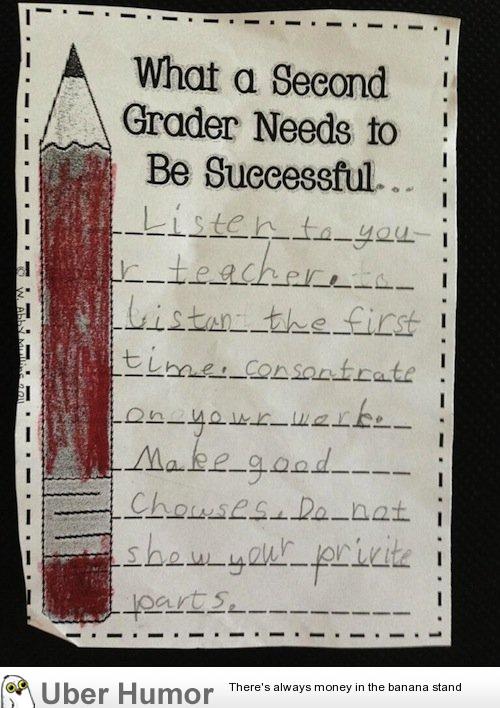 What a Second
Grader Needs to
Be Successful...
Listen to you-
r teacher. to
Listan the first
time. Consontrate
on your work.
Make good
Chowses. Do not
show your privite
parts.
Uber Humor
There's always money in the banana stand